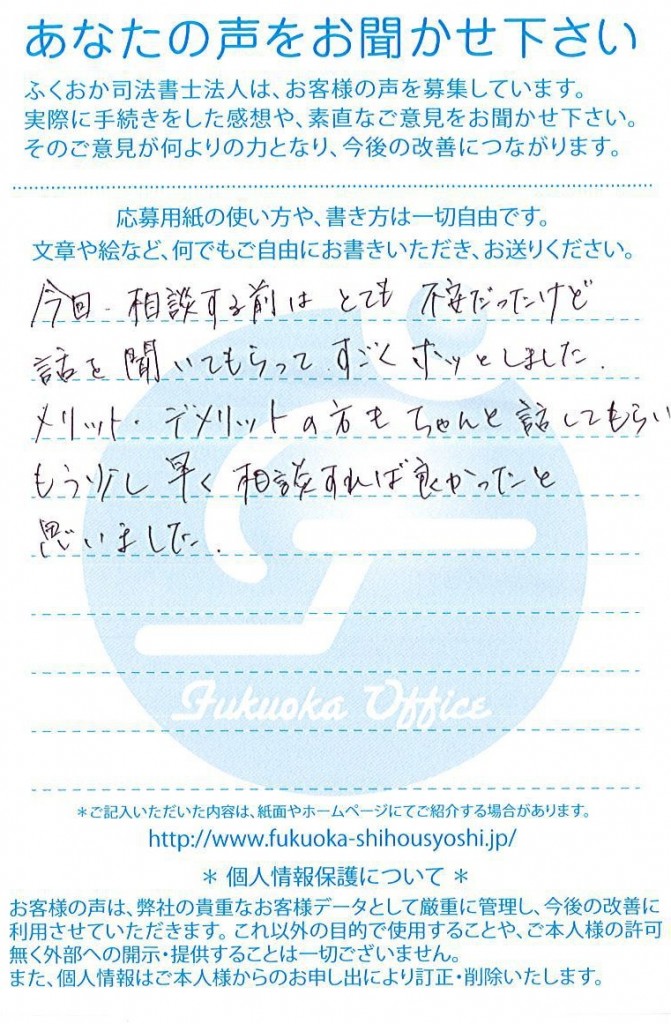 あなたの声をお聞かせ下さい
ふくおか司法書士法人は、お客様の声を募集しています。
実際に手続きをした感想や、素直なご意見をお聞かせ下さい。
そのご意見が何よりの力となり、今後の改善につながります。
応募用紙の使い方や、書き方は一切自由です。
文章や絵など、何でもご自由にお書きいただき、お送りください。
今回、相談する前は とても 不安だったけど
話を聞いてもらって すごく ホッとしました.
メリット・デメリットの方も ちゃんと 話してもらい
もう少し 早く 相談すれば 良かったと
思いました.
Fukuoka Office
＊ご記入いただいた内容は、紙面やホームページにてご紹介する場合があります。
http://www.fukuoka-shihousyoshi.jp/
＊ 個人情報保護について ＊
お客様の声は、弊社の貴重なお客様データとして厳重に管理し、今後の改善に
利用させていただきます。これ以外の目的で使用することや、ご本人様の許可
無く外部への開示・提供することは一切ございません。
また、個人情報はご本人様からのお申し出により訂正・削除いたします。